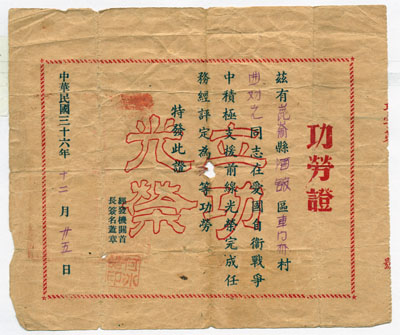 功勞證
茲有莒南縣 區 村
同志在愛國自衛戰爭
中積極支援前線光榮完成任
務經評定為 等功勞
特發此證
立功
光榮
縣發機關首
長簽名蓋章
中華民國三十六年 十二 月 廿五 日